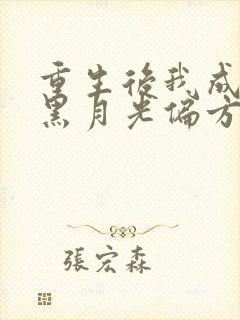 重生後我成
黑月光偏方
張宏森